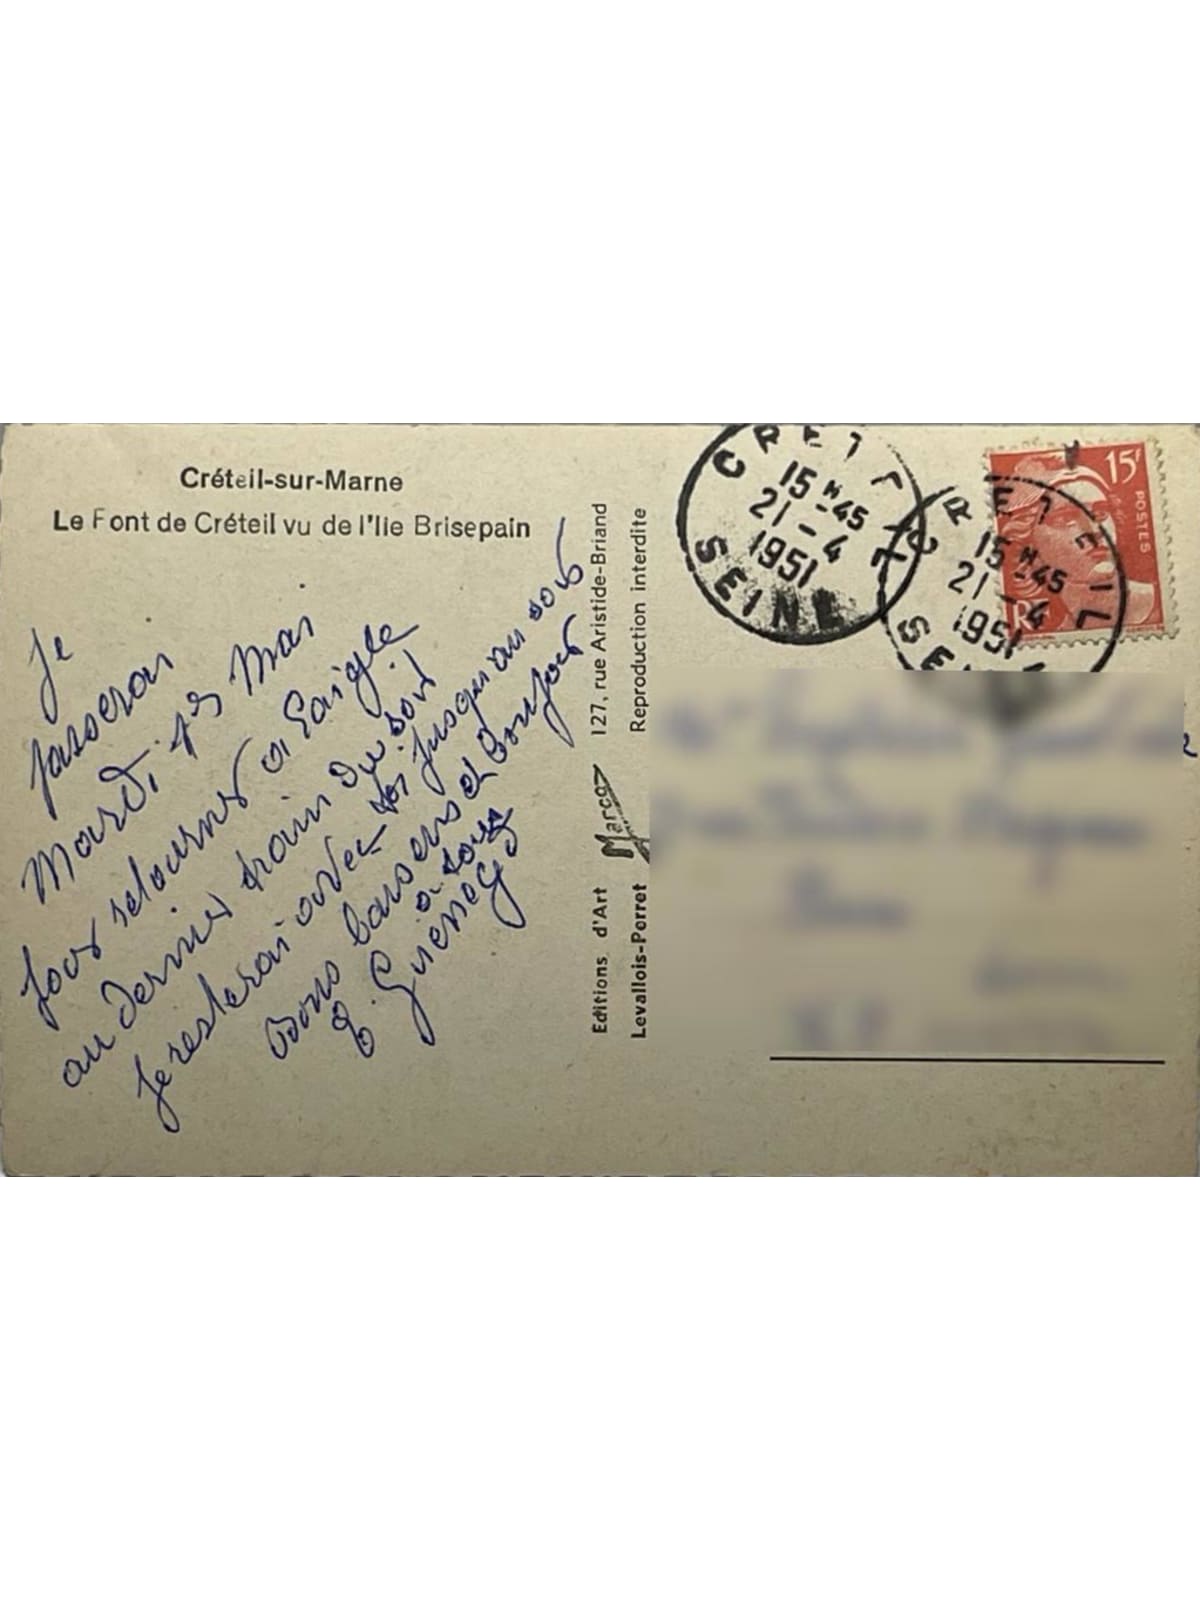 Créteil-sur-Marne
Le Pont de Créteil vu de l'Ile Brisepain
Je
passerai
Mardi, 1er Mai
pour retourner à Laigle
au dernier train du soir
Je resterai avec toi jusqu'au soir
Bons baisers et bonjour
à tous
Editions d'Art Marco 127, rue Aristide-Briand
Levallois-Perret Reproduction interdite
CRETEIL
15 H -45
21 -4
1951
SEINE
CRETEIL
15 H -45
21 -4
1951
SEINE
15F
POSTES
RF